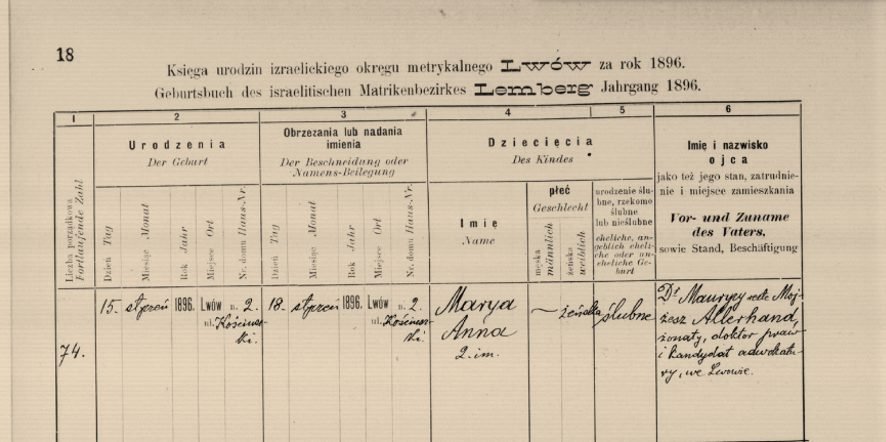 18
Księga urodzin izraelickiego okręgu metrykalnego Lwów za rok 1896.
Geburtsbuch des israelitischen Matrikenbezirkes Lemberg Jahrgang 1896.
1
2
3
4
5
6
Liczba porządkowa
Fortlaufende Zahl
Urodzenia
Der Geburt
Dzień Tag
Miesiąc Monat
Rok Jahr
Miejsce Ort
Nr. domu Haus-Nr.
Obrzezania lub nadania
imienia
Der Beschneidung oder
Namens-Beilegung
Dzień Tag
Miesiąc Monat
Rok Jahr
Miejsce Ort
Nr. domu Haus-Nr.
Dziecięcia
Des Kindes
Imię
Name
płeć
Geschlecht
męska
männlich
żeńska
weiblich
urodzenie ślu-
bne, rzekomo
ślubne
lub nieślubne
eheliche, an-
geblich eheli-
che oder un-
eheliche Ge-
burt
Imię i nazwisko
ojca
jako też jego stan, zatrudnie-
nie i miejsce zamieszkania
Vor- und Zuname
des Vaters,
sowie Stand, Beschäftigung
74.
15. styczeń 1896. Lwów n. 2.
ul. Kościusz-
ki.
18. styczeń 1896. Lwów n. 2.
ul. Kościusz-
ki.
Marya
Anna
2. im.
żeńska
ślubne
Dr Maurycy recte Moj-
żesz Allerhand,
żonaty, doktor praw
i kandydat adwokatu-
ry, we Lwowie.